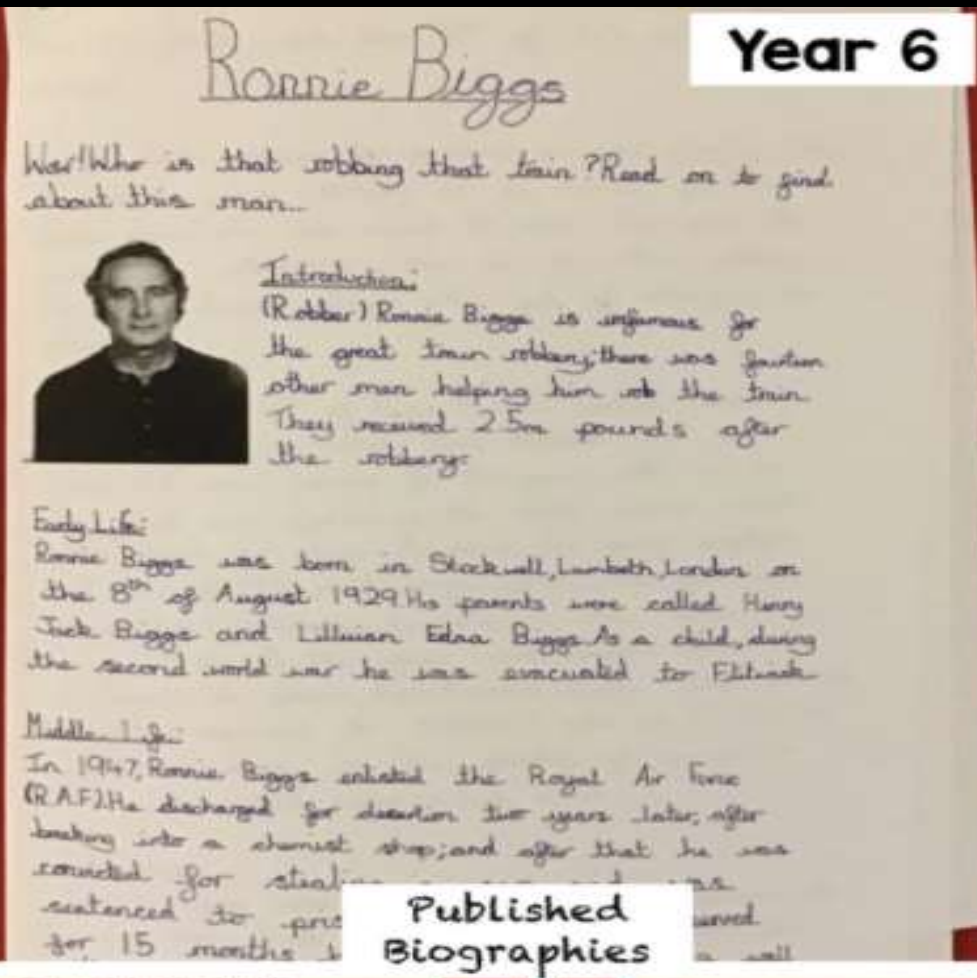 Year 6
Ronnie Biggs
Wow! Who is that robbing that train? Read on to find
about this man...
Introduction:
(Robber) Ronnie Biggs is infamous for
the great train robbery; there was fourteen
other men helping him rob the train
They received 2.5m pounds after
the robbery.
Early Life:
Ronnie Biggs was born in Stockwell, Lambeth, London on
the 8th of August 1929. His parents were called Henry
Jack Biggs and Lilluian Edna Biggs. As a child, during
the second world war he was evacuated to Flitwick
Middle Life:
In 1947, Ronnie Biggs enlisted the Royal Air Force
(R.A.F). He discharged for desertion two years later, after
breaking into a chemist shop; and after that he was
convicted for stealing
sentenced to
for 15 months
Published
Biographies